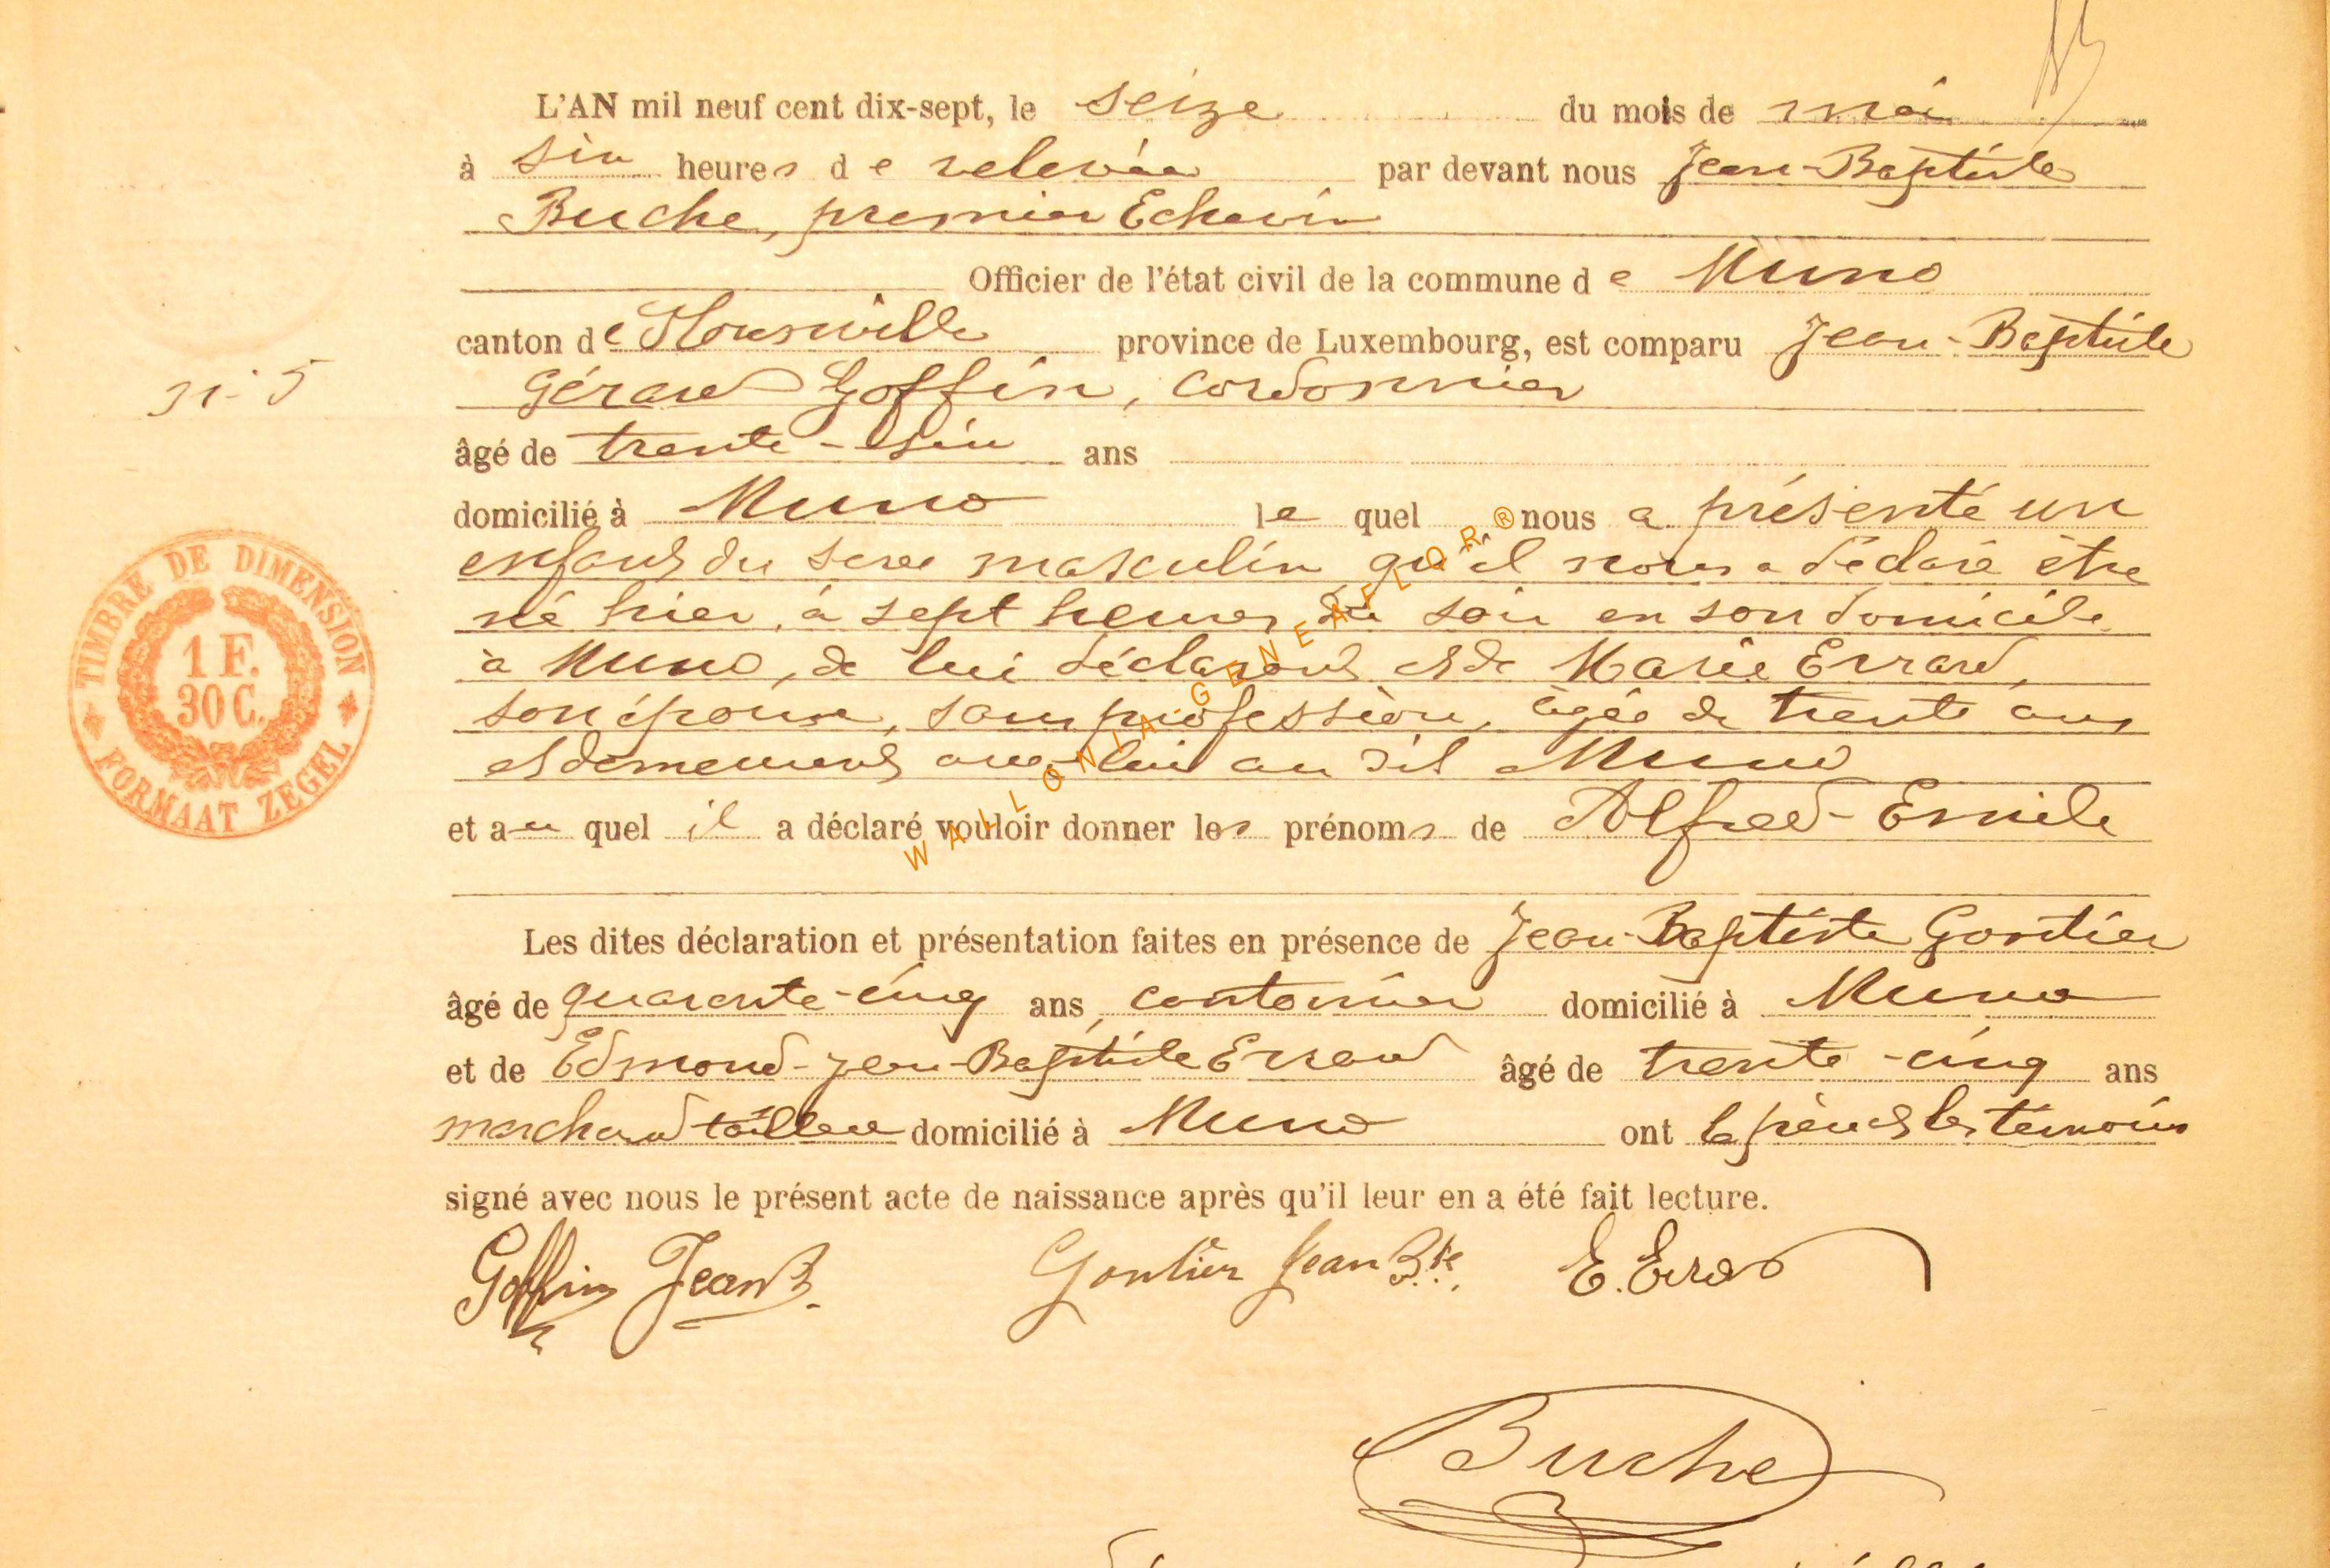 L'AN mil neuf cent dix-sept, le seize du mois de mai
à six heures de relevée par devant nous Jean-Baptiste
Buche, premier Echevin
Officier de l'état civil de la commune de Muno
canton de Florenville province de Luxembourg, est comparu Jean-Baptiste
Gérard Goffin, cordonnier
31-5
âgé de trente-six ans
domicilié à Muno lequel nous a présenté un
enfant du sexe masculin qu'il nous a déclaré être
né hier, à sept heures du soir en son domicile
à Muno, de lui déclarant et de Marie Errard,
son épouse, sans profession, âgée de trente ans
et demeurant avec lui au dit Muno
et auquel il a déclaré vouloir donner les prénoms de Alfred-Emile
Les dites déclaration et présentation faites en présence de Jean-Baptiste Gontier
âgé de quarante-cinq ans, cantonnier domicilié à Muno
et de Edmond-Jean-Baptiste Errard âgé de trente-cinq ans
marchand tailleur domicilié à Muno ont le père et les témoins
signé avec nous le présent acte de naissance après qu'il leur en a été fait lecture.
Goffin Jean B. Gontier Jean Bte. E. Errard
Buche
TIMBRE DE DIMENSION
1 F.
30 C.
FORMAAT ZEGEL
WALLONIA-GENEAFLOR®